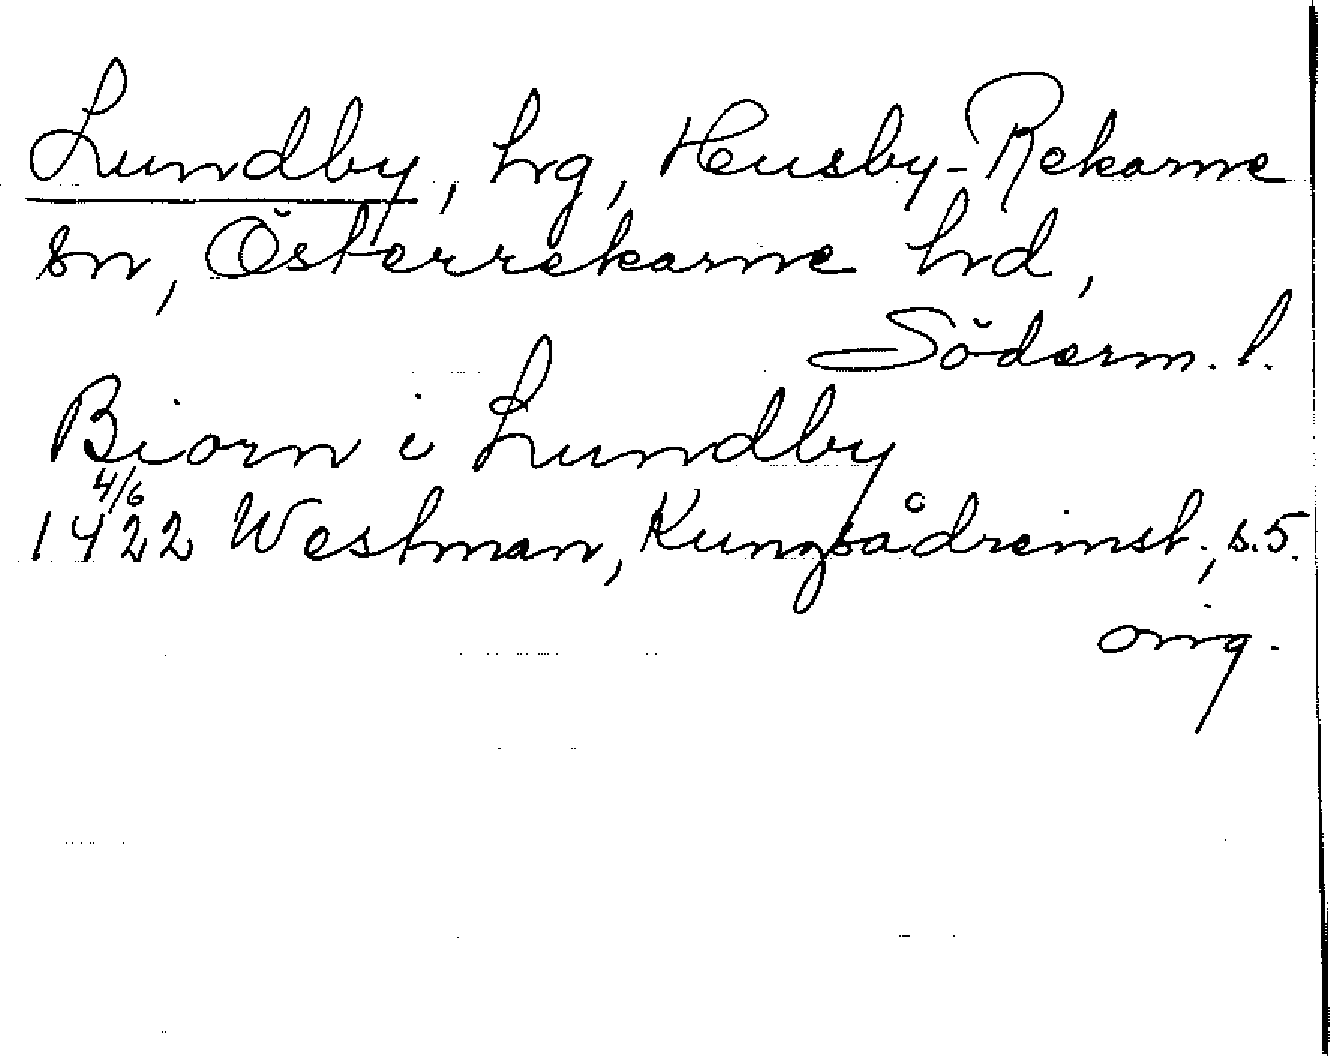 Lundby, hrg, Husby-Rekarne
sn, Österrekarne hrd,
Söderm. l.
Biorn i Lundby
4/6
1422 Westman, Kungsådreinst., s. 5.
orig.